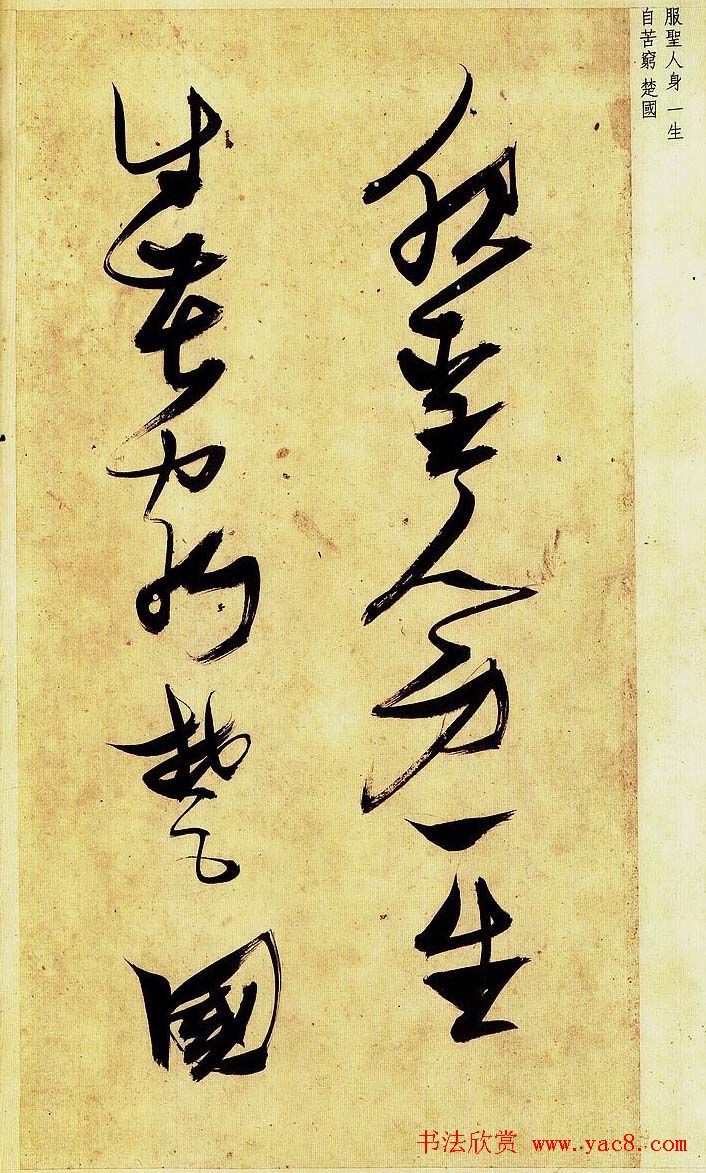 服聖人身 一生
自苦窮 楚國
服聖人身一生
自苦窮楚國
书法欣赏 www.yac8.com